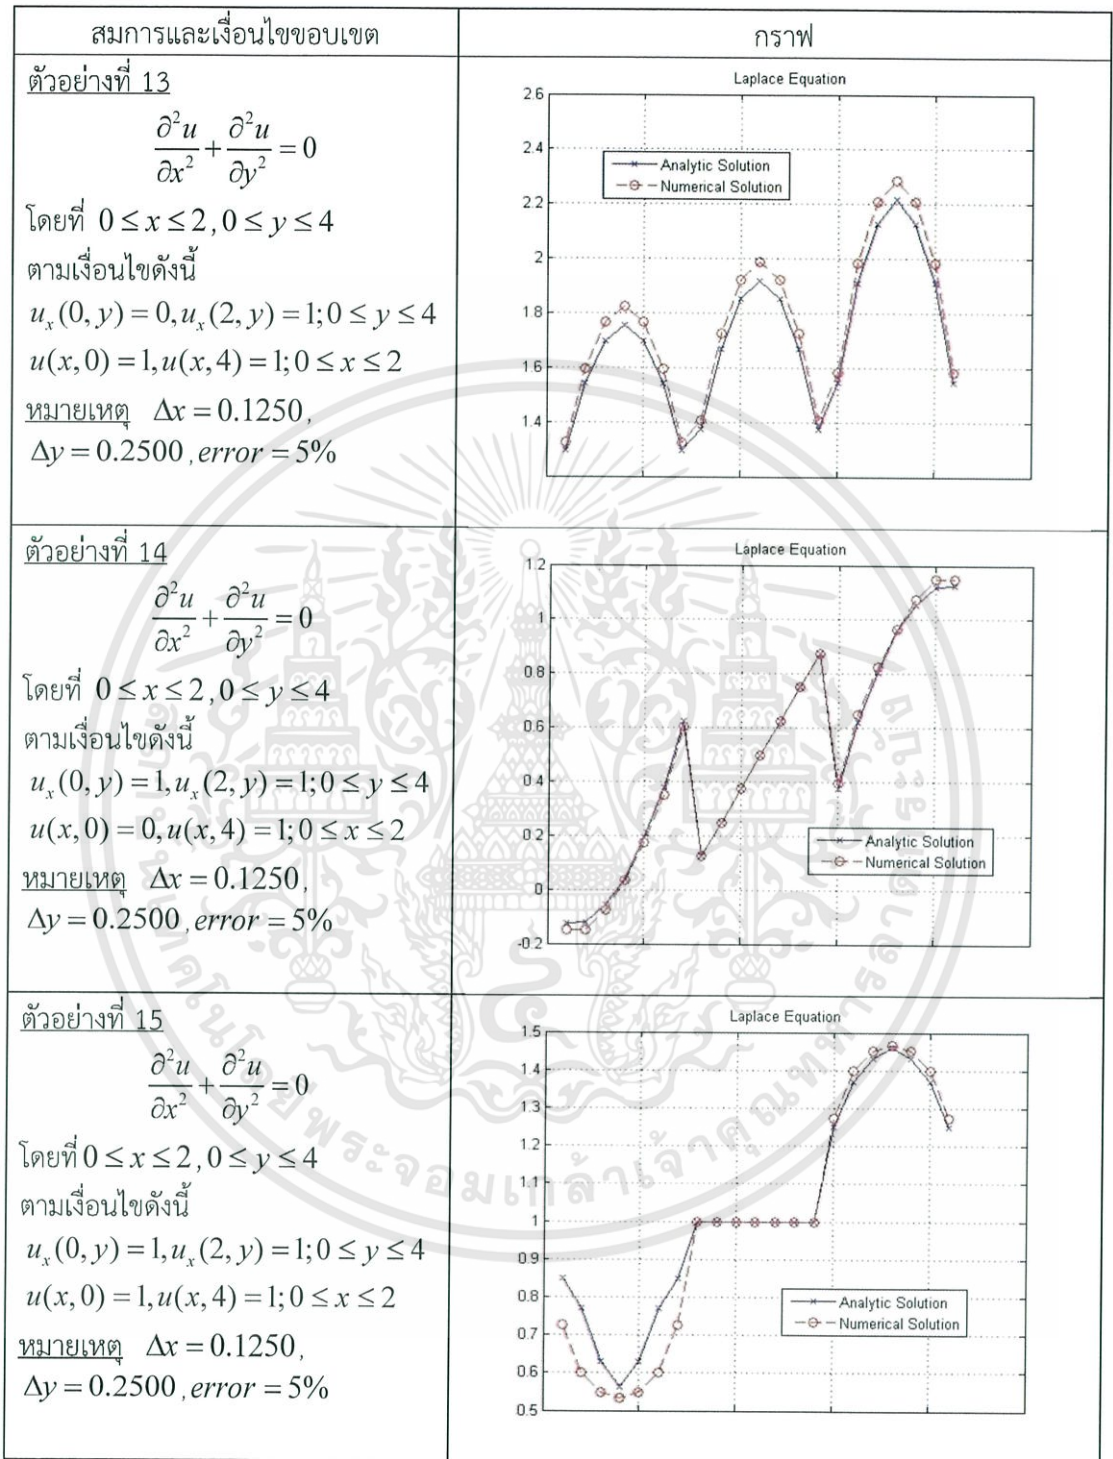 สมการและเงื่อนไขขอบเขต
กราฟ
ตัวอย่างที่ 13
∂²u/∂x² + ∂²u/∂y² = 0
โดยที่ 0 ≤ x ≤ 2, 0 ≤ y ≤ 4
ตามเงื่อนไขดังนี้
uₓ(0, y) = 0, uₓ(2, y) = 1; 0 ≤ y ≤ 4
u(x, 0) = 1, u(x, 4) = 1; 0 ≤ x ≤ 2
หมายเหตุ Δx = 0.1250,
Δy = 0.2500, error = 5%
Laplace Equation
2.6
2.4
2.2
2
1.8
1.6
1.4
Analytic Solution
Numerical Solution
ตัวอย่างที่ 14
∂²u/∂x² + ∂²u/∂y² = 0
โดยที่ 0 ≤ x ≤ 2, 0 ≤ y ≤ 4
ตามเงื่อนไขดังนี้
uₓ(0, y) = 1, uₓ(2, y) = 1; 0 ≤ y ≤ 4
u(x, 0) = 0, u(x, 4) = 1; 0 ≤ x ≤ 2
หมายเหตุ Δx = 0.1250,
Δy = 0.2500, error = 5%
Laplace Equation
1.2
1
0.8
0.6
0.4
0.2
0
-0.2
Analytic Solution
Numerical Solution
ตัวอย่างที่ 15
∂²u/∂x² + ∂²u/∂y² = 0
โดยที่ 0 ≤ x ≤ 2, 0 ≤ y ≤ 4
ตามเงื่อนไขดังนี้
uₓ(0, y) = 1, uₓ(2, y) = 1; 0 ≤ y ≤ 4
u(x, 0) = 1, u(x, 4) = 1; 0 ≤ x ≤ 2
หมายเหตุ Δx = 0.1250,
Δy = 0.2500, error = 5%
Laplace Equation
1.5
1.4
1.3
1.2
1.1
1
0.9
0.8
0.7
0.6
0.5
Analytic Solution
Numerical Solution
สถาบันเทคโนโลยีพระจอมเกล้าเจ้าคุณทหารลาดกระบัง